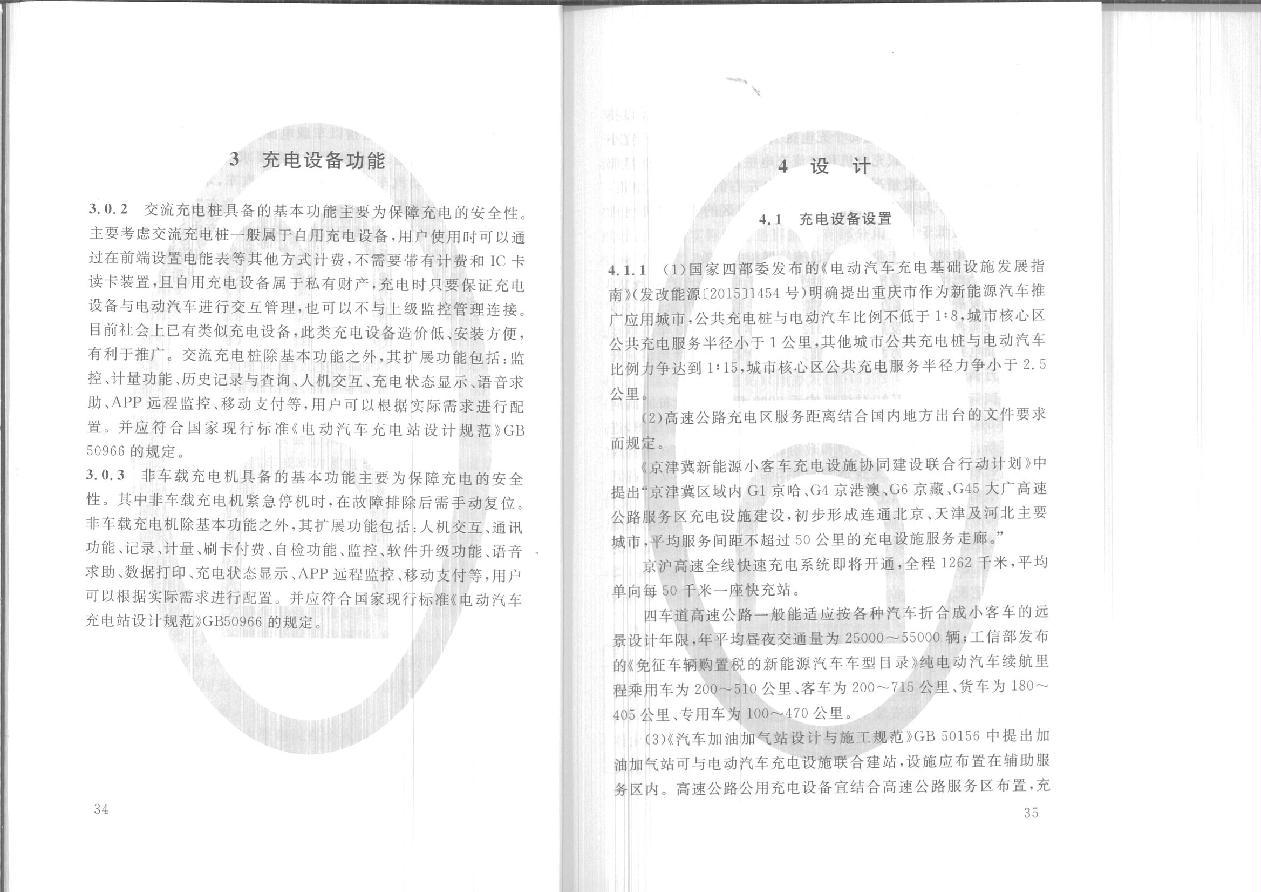 3 充电设备功能
3.0.2 交流充电桩具备的基本功能主要为保障充电的安全性。
主要考虑交流充电桩一般属于自用充电设备,用户使用时可以通
过在前端设置电能表等其他方式计费,不需要带有计费和 IC 卡
读卡装置,且自用充电设备属于私有财产,充电时只要保证充电
设备与电动汽车进行交互管理,也可以不与上级监控管理连接。
目前社会上已有类似充电设备,此类充电设备造价低、安装方便,
有利于推广。交流充电桩除基本功能之外,其扩展功能包括:监
控、计量功能、历史记录与查询、人机交互、充电状态显示、语音求
助、APP 远程监控、移动支付等,用户可以根据实际需求进行配
置。并应符合国家现行标准《电动汽车充电站设计规范》GB
50966 的规定。
3.0.3 非车载充电机具备的基本功能主要为保障充电的安全
性。其中非车载充电机紧急停机时,在故障排除后需手动复位。
非车载充电机除基本功能之外,其扩展功能包括:人机交互、通讯
功能、记录、计量、刷卡付费、自检功能、监控、软件升级功能、语音
求助、数据打印、充电状态显示、APP 远程监控、移动支付等,用户
可以根据实际需求进行配置。并应符合国家现行标准《电动汽车
充电站设计规范》GB50966 的规定。
34
4 设 计
4.1 充电设备设置
4.1.1 (1)国家四部委发布的《电动汽车充电基础设施发展指
南》(发改能源〔2015〕1454 号)明确提出重庆市作为新能源汽车推
广应用城市,公共充电桩与电动汽车比例不低于 1:8,城市核心区
公共充电服务半径小于 1 公里,其他城市公共充电桩与电动汽车
比例力争达到 1:15,城市核心区公共充电服务半径力争小于 2.5
公里。
(2)高速公路充电区服务距离结合国内地方出台的文件要求
而规定。
《京津冀新能源小客车充电设施协同建设联合行动计划》中
提出“京津冀区域内 G1 京哈、G4 京港澳、G6 京藏、G45 大广高速
公路服务区充电设施建设,初步形成连通北京、天津及河北主要
城市,平均服务间距不超过 50 公里的充电设施服务走廊。”
京沪高速全线快速充电系统即将开通,全程 1262 千米,平均
单向每 50 千米一座快充站。
四车道高速公路一般能适应按各种汽车折合成小客车的远
景设计年限,年平均昼夜交通量为 25000～55000 辆;工信部发布
的《免征车辆购置税的新能源汽车车型目录》纯电动汽车续航里
程乘用车为 200～510 公里、客车为 200～715 公里、货车为 180～
405 公里、专用车为 100～470 公里。
(3)《汽车加油加气站设计与施工规范》GB 50156 中提出加
油加气站可与电动汽车充电设施联合建站,设施应布置在辅助服
务区内。高速公路公用充电设备宜结合高速公路服务区布置,充
35